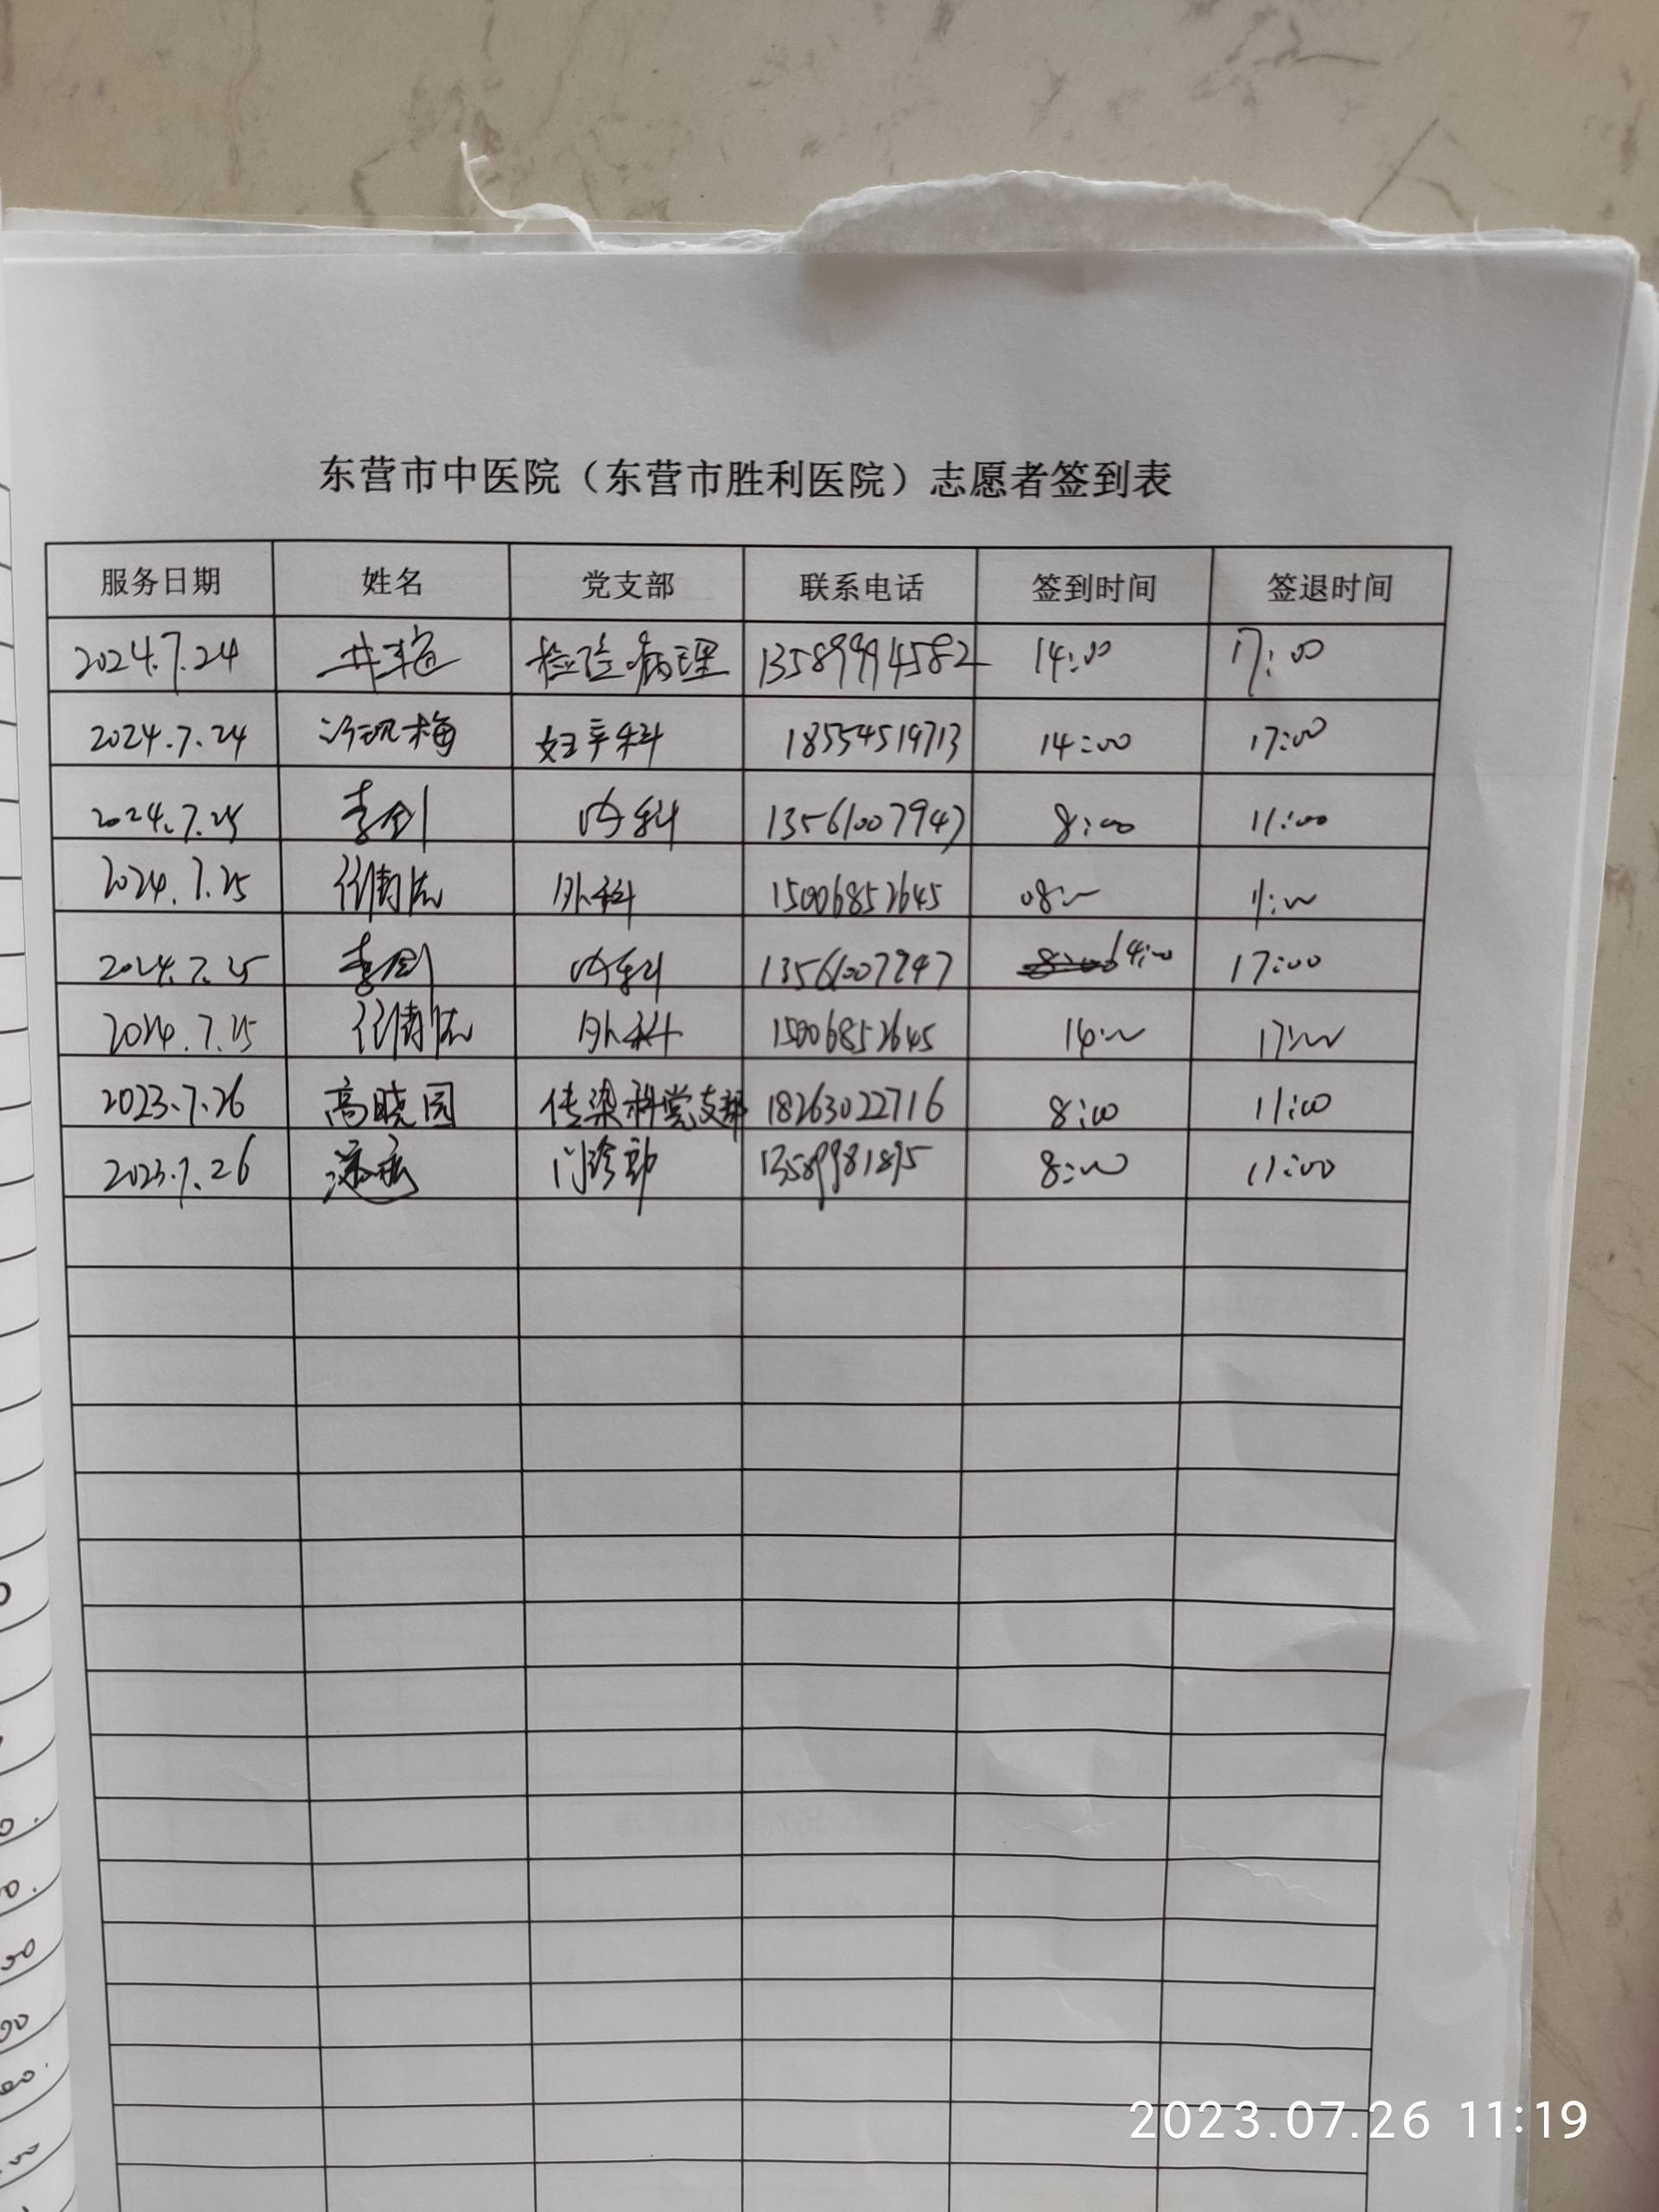 东营市中医院（东营市胜利医院）志愿者签到表
服务日期 姓名 党支部 联系电话 签到时间 签退时间
2024.7.24 检验病理 13589994582 14:00 17:00
2024.7.24 梅 妇产科 18554519713 14:00 17:00
2024.7.25 李剑 内科 13561007947 8:00 11:00
2024.7.25 外科 15006852645 08:00 11:00
2024.7.25 李剑 内科 13561007947 14:00 17:00
2024.7.25 外科 15006852645 14:00 17:00
2023.7.26 高晓园 传染科党支部 18263022716 8:00 11:00
2023.7.26 门诊部 13589981895 8:00 11:00
2023.07.26 11:19